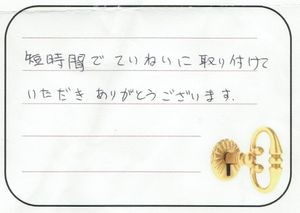 短時間で ていねいに 取り付けて
いただき ありがとうございます.